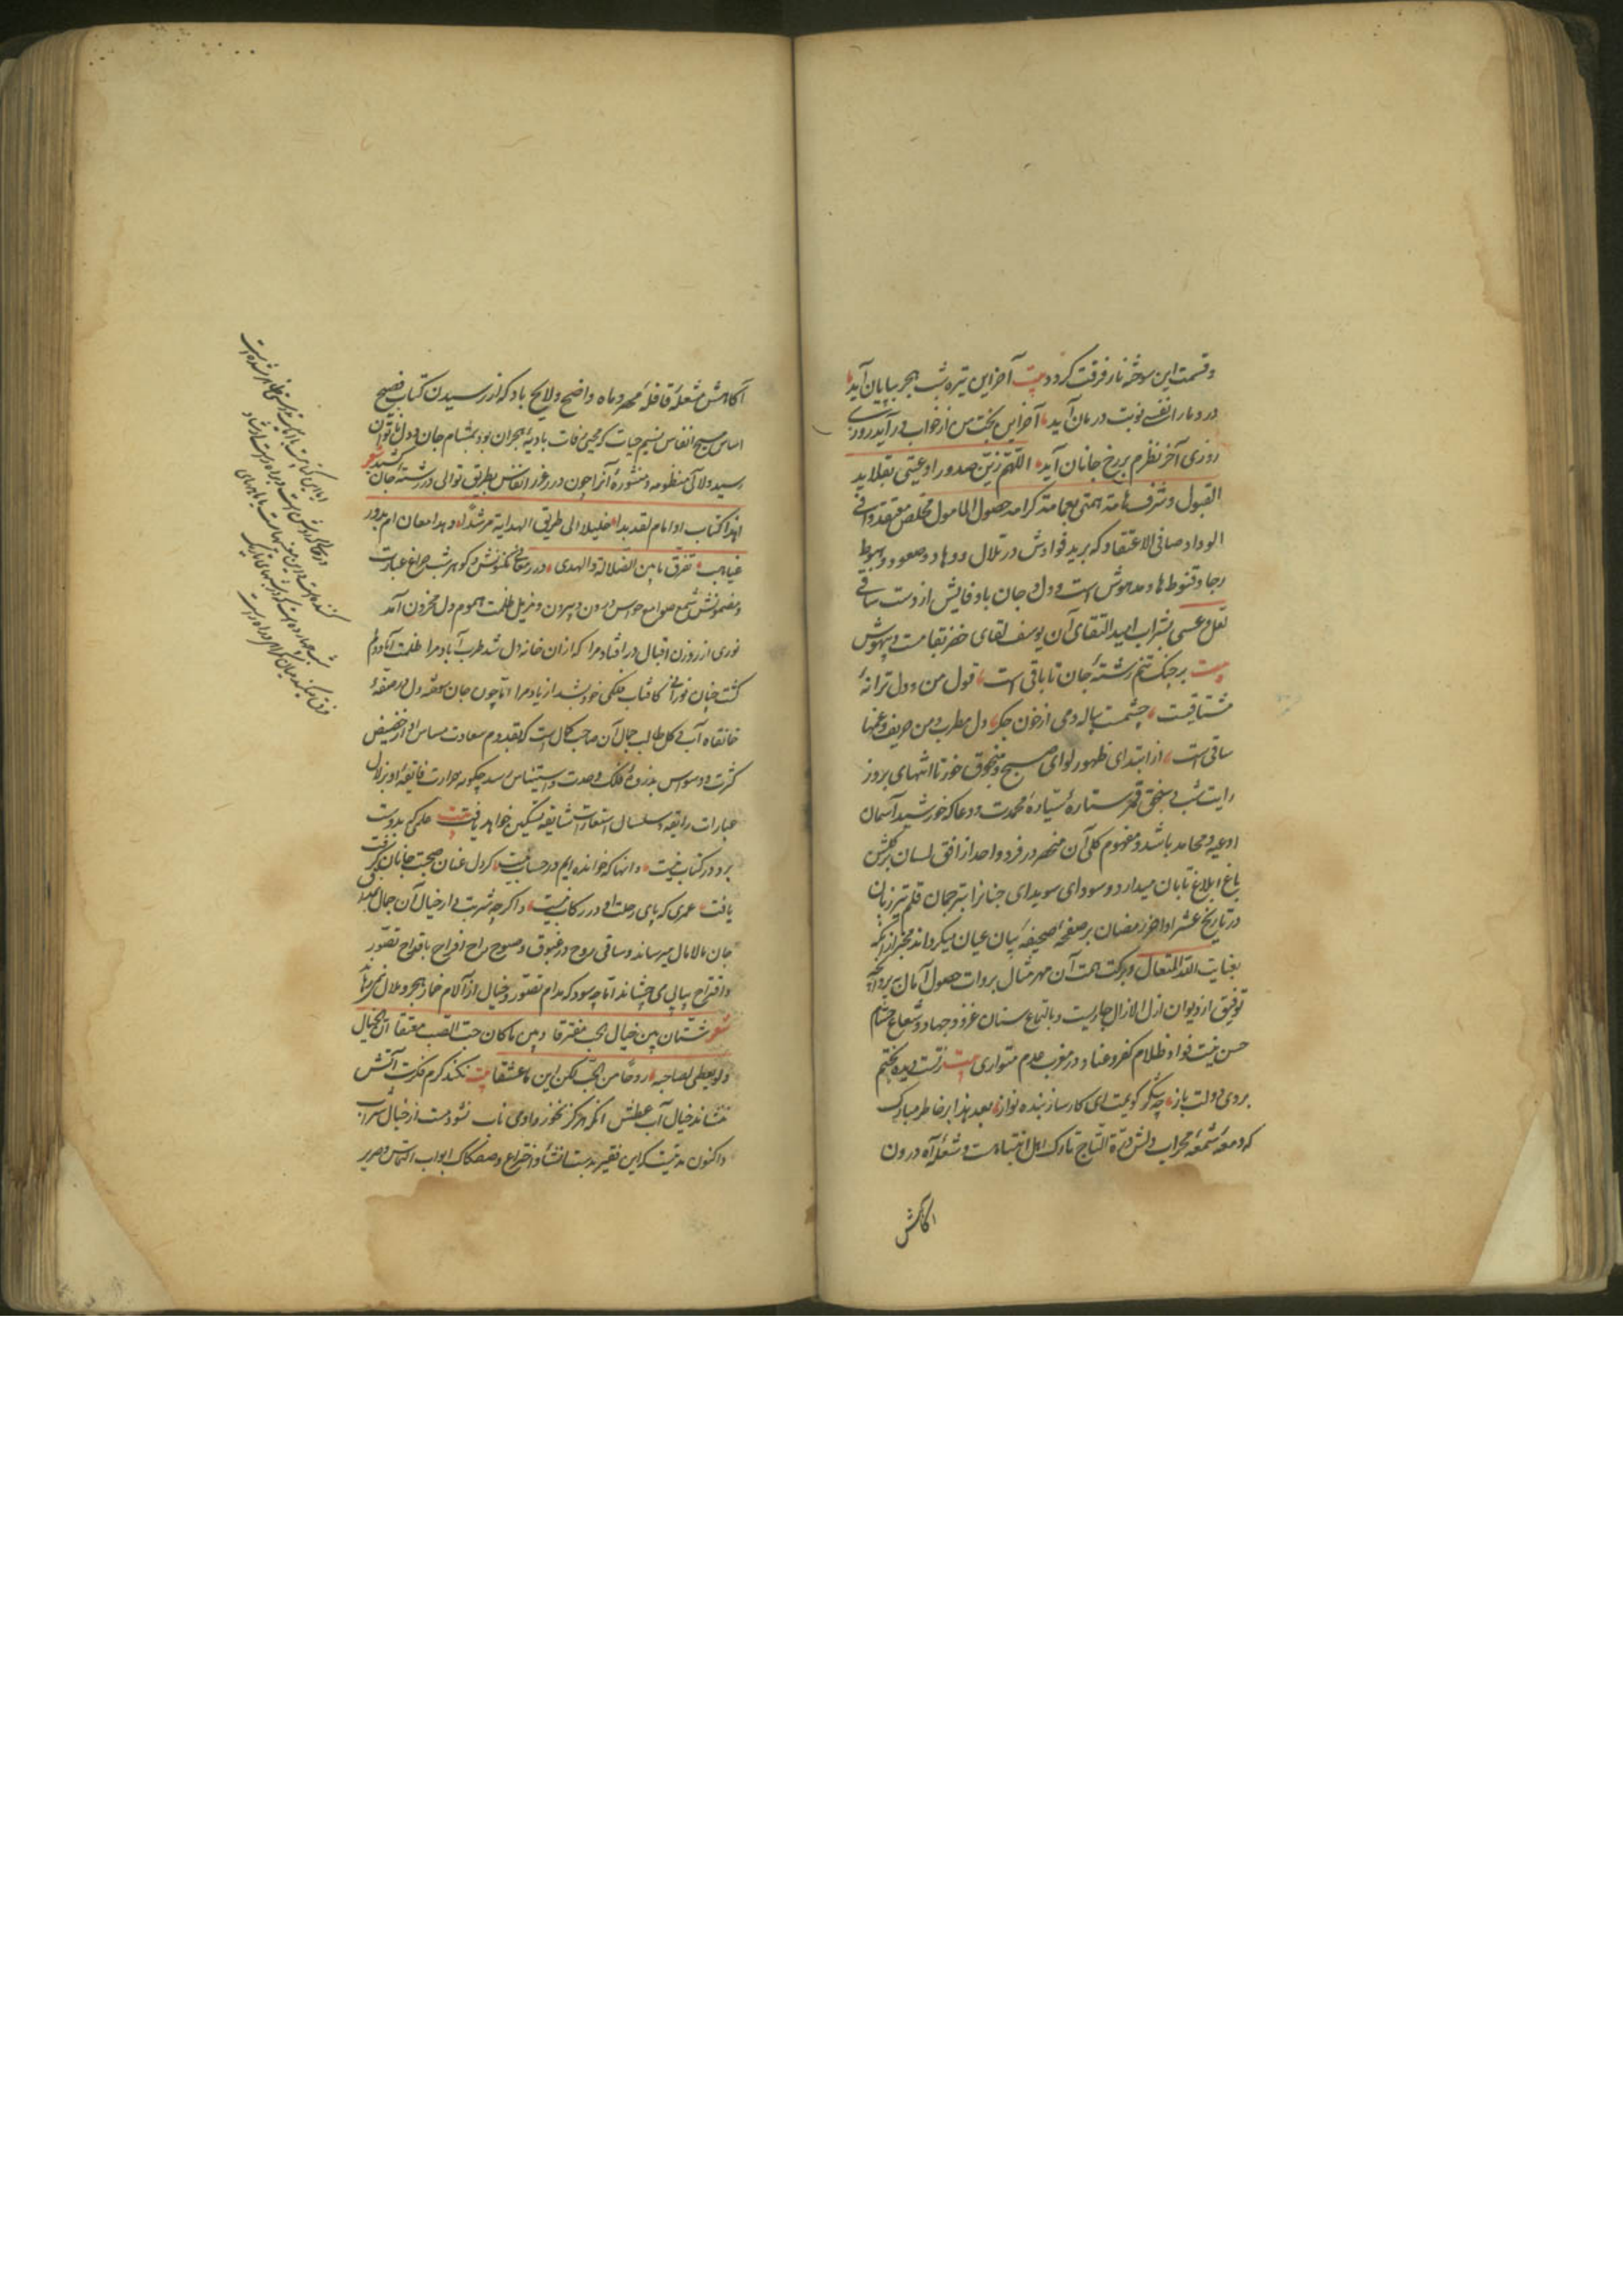 وقسمت این سوخته نار فرقت کردد بیت آخر این تیره شب هجر بپایان آید
درد ما را نفسی نوبت درمان آید آخر این بخت من از خواب درآید روزی
روزی آخر نظرم بر رخ جانان آید اللهم زین صدور اوعیتی بقلاید
القبول وشرف هامة همتی بعمامة کرامة حصول المامول مخلص معتقد وافی
الوداد صافی الاعتقاد که برید فوادش در تلال ووهاد وصعود وهبوط
رجا وقنوط ها ومدهوش است ودل وجان باوفایش از دست ساقی
لعل وعسی بشراب امید التقای آن یوسف لقای خضر بقا مست وبیهوش
بیت بر چنک تنم رشتهٔ جان تا باقی است قول من ودل ترانهٔ
مشتاقیست چشمست پیاله ومی از خون جکر دل مطرب ومن حریف وغمها
ساقی است از ابتدای ظهور لوای صبح ومنجوق خور تا انتهای بروز
رایت شب وسنجق قمر ستارهٔ سیارهٔ محمدت ودعا که خورشید آسمان
ادعیه ومحامد باشد ومفهوم کلی آن منحصر در فرد واحد از افق لسان بر کلشن
باغ ابلاغ تابان میدارد وسودای سویدای جنانرا بترجمان قلم تیز زبان
در تاریخ عشر اواخر رمضان بر صفحهٔ صحیفهٔ بیان عیان میکرداند مخبر از آنکه
بعنایت الله المتعال وبرکت همت آن مهر مثال بروات حصول آمال بپروانچهٔ
توفیق از دیوان ازل لازال جاریست وبالتماع سنان غزو وجهاد وشعاع حسام
حسن نیت فواد ظلام کفر وعناد در مغرب عدم متواری بیت زتست دیده بختم
بروی دولت باز چه شکر کویمت ای کارساز بنده نواز بعد هذا بر خاطر مبارک
که دمعهٔ شمعهٔ محراب دلش درة التاج تارک اهل انتباه است وشعلهٔ آه درون
آکاهش
آکاهش مشعلهٔ قافلهٔ مهر وماه واضح ولایح باد که از رسیدن کتاب فصیح
اساس مسیح انفاس نسیم حیات که محیی رفات بادیهٔ هجران بود بمشام جان ودل ناتوان
رسید ولآلی منظومه ومنثورهٔ آنرا چون درر غرر انفاس بطریق توالی در رشتهٔ جان کشید شعر
اهذا کتاب او امام لقد بدا خلیلا الی طریق الهدایة مرشدا وهذا معان ام بدور
غیاهب تفرق ما بین الضلالة والهدی درر معانی مکنونش که کوهر شب چراغ عبارت
ومضمونش شمع صوامع حواس درون وبیرون ومزیل ظلمت هموم دل محزون آمد
نوری از روزن اقبال در افتاد مرا که از آن خانهٔ دل شد طرب آباد مرا ظلمت آباد دلم
کشت چنان نورانی کافتاب فلکی خود بشد از یاد مرا اما چون جان سوخته دل در صفهٔ
خانقاه آب وکل طالب جمال آن صاحب کمال است که بقدوم سعادت مساس او از حضیض
کثرت ووسواس بذروهٔ فلک وحدت واستیناس رسد چکونه حرارت فایقهٔ او بزلال
عبارات رایقه وسلسال استعارات شایقه تسکین خواهد یافت بیت علمی که بدوست
برد در کتاب نیست وانها که خوانده ایم در حساب نیست کر دل عنان صحبت جانان کرفت
یافت عمری که پای رحلت او در رکاب نیست واکر چه شربت دار خیال آن جمال مذاق
جان مالامال میرساند وساقی روح در غبوق وصبوح راح افراح باقداح تصور
واقتراح پیاپی می چشاند اما چه سود که مدام تصور وخیال از آلام خمار هجر وملال نمی رهاند
شعر شتان بین خیال الحب مفترقا وبین ما کان حب الصب معتنقا ان الخیال
ولو یعطی لصاحبه روحا من الحب لکن این ما عشقا بیت نکند کرم فکرت آتش
ننشاند خیال آب عطش آنکه هرکز نخورد وادی ناب نشود مست از خیال شراب
واکنون مدتیست که این فقیر بدست انشا واختراع وصکاک ابواب التماس وصریر